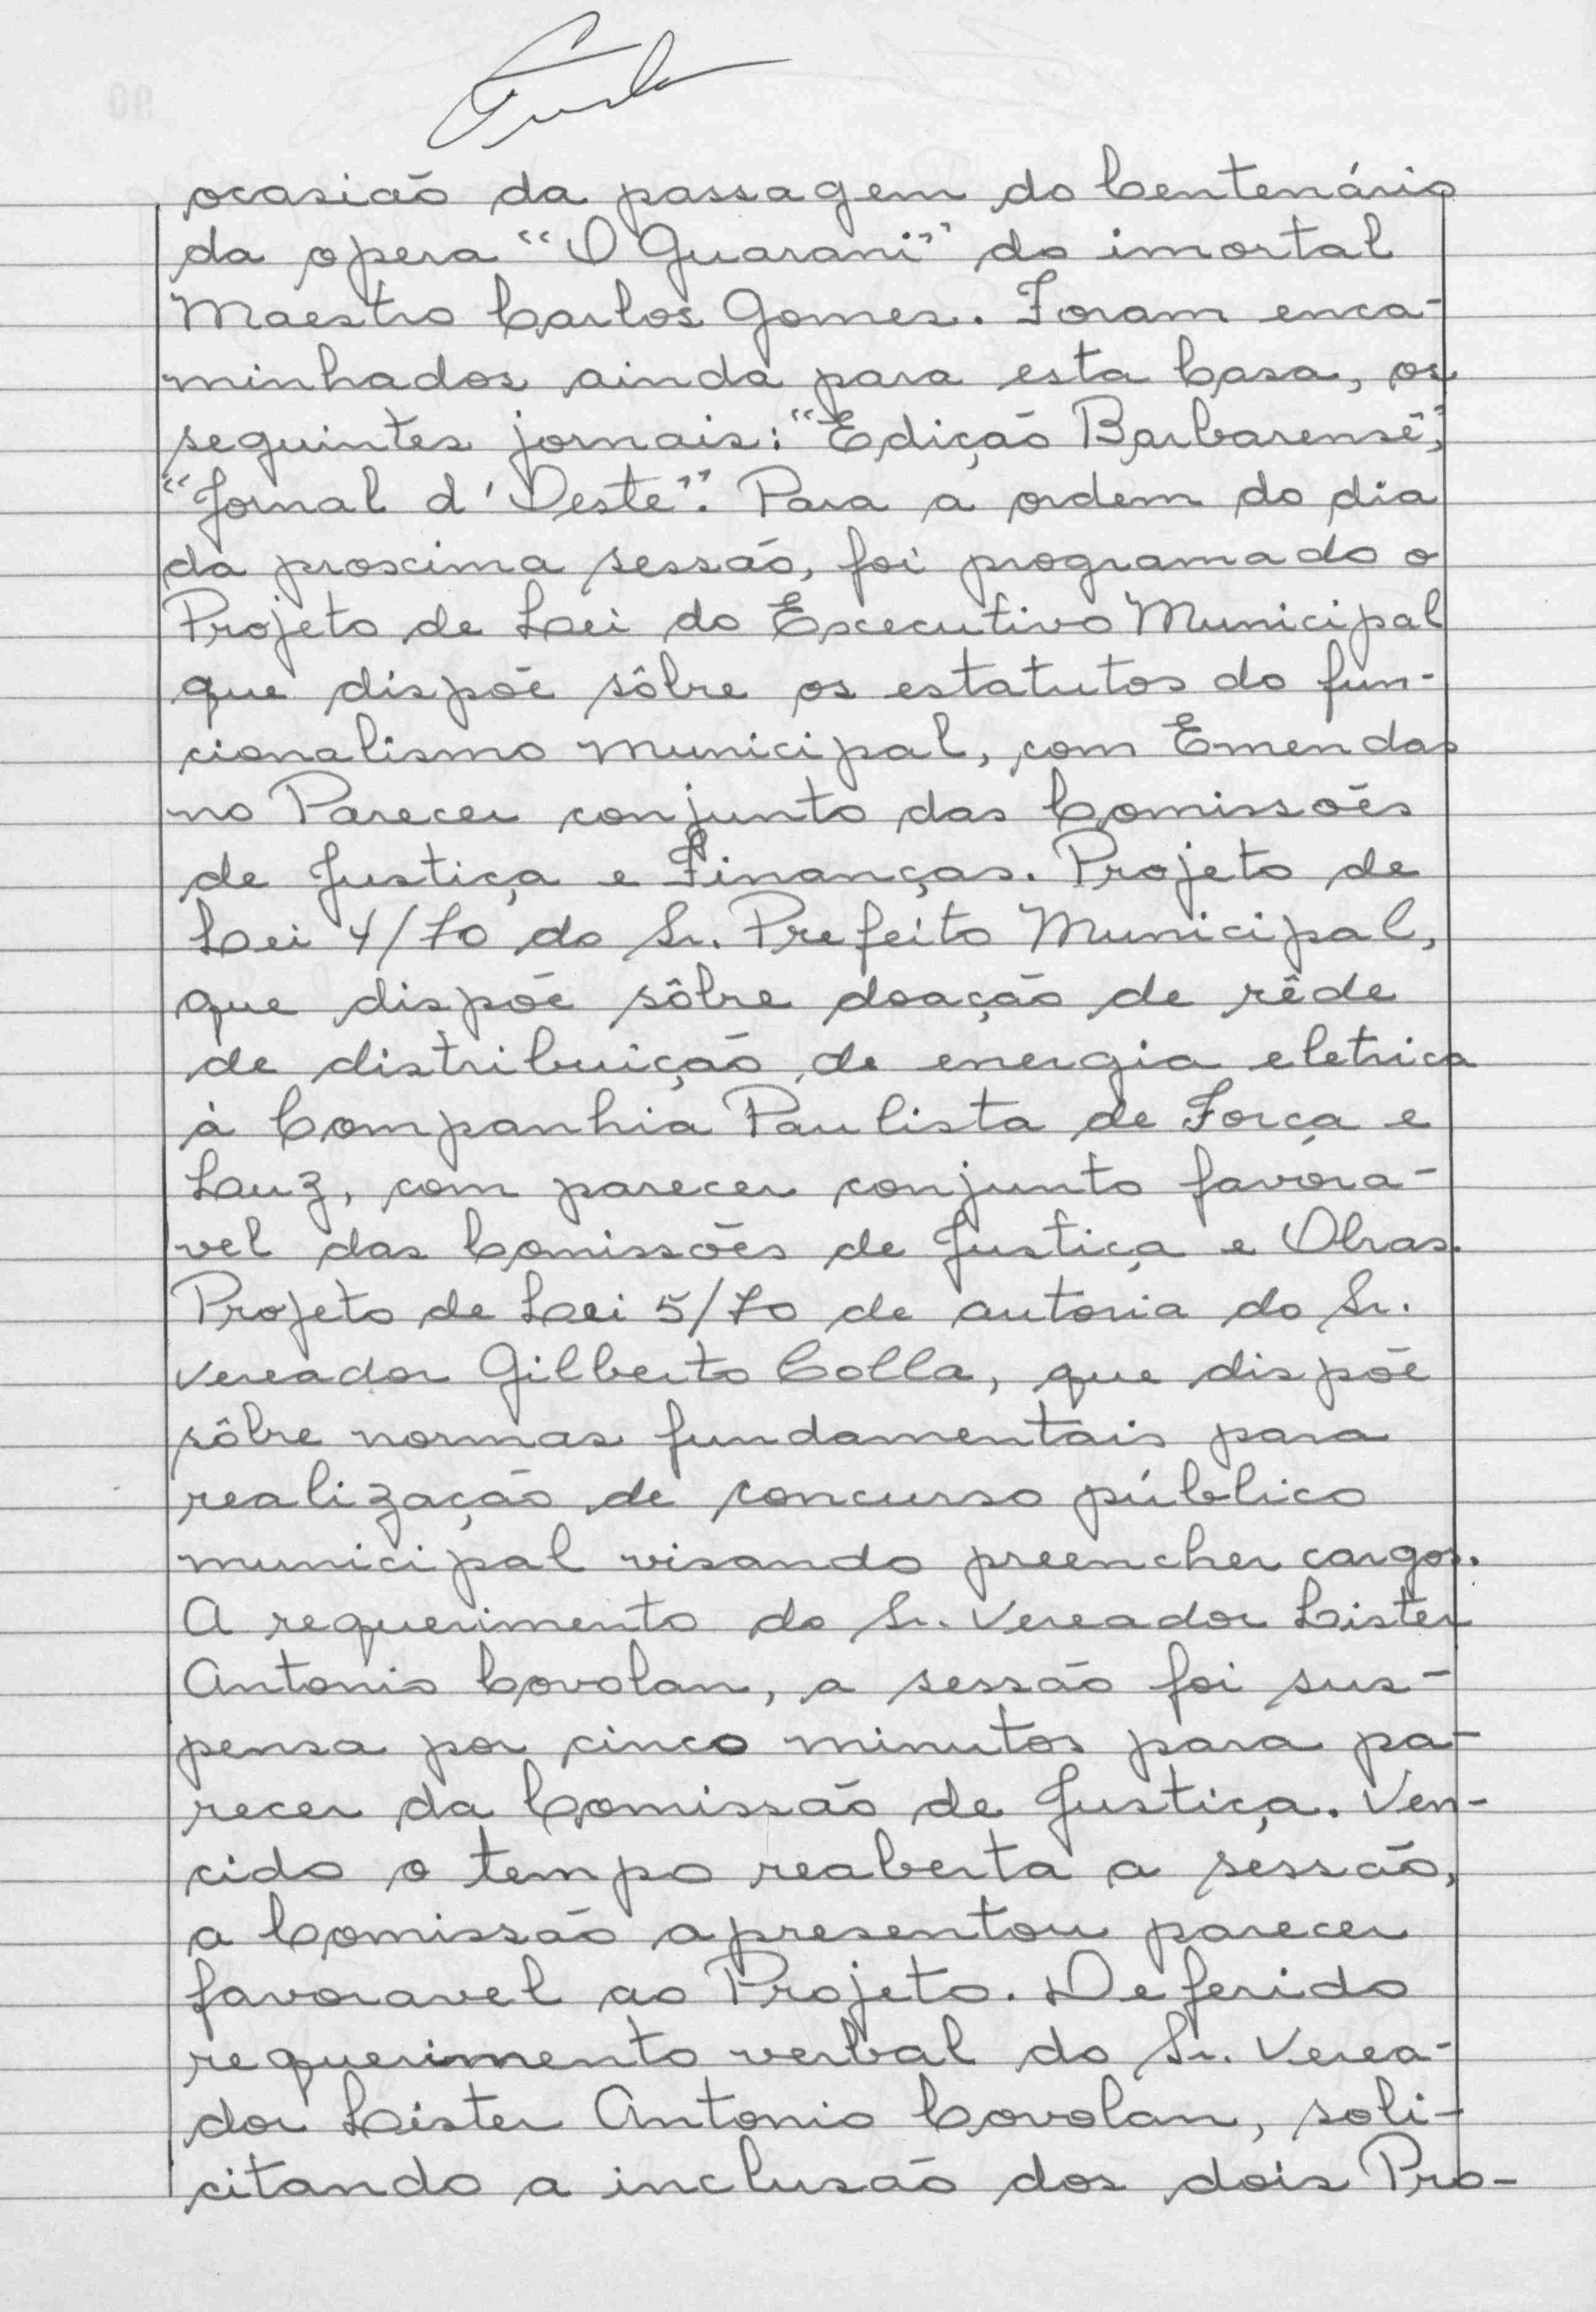 ocasião da passagem do Centenário
da opera "O Guarani" do imortal
Maestro Carlos Gomes. Foram enca-
minhados ainda para esta Casa, os
seguintes jornais: "Edição Barbarense",
"Jornal d'Oeste". Para a ordem do dia
da proxima sessão, foi programado o
Projeto de Lei do Executivo Municipal
que dispõe sôbre os estatutos do fun-
cionalismo municipal, com Emendas
no Parecer conjunto das Comissões
de Justiça e Finanças. Projeto de
Lei 4/70 do Sr. Prefeito Municipal,
que dispõe sôbre doação de rêde
de distribuição de energia eletrica
à Companhia Paulista de Força e
Luz, com parecer conjunto favora-
vel das Comissões de Justiça e Obras.
Projeto de Lei 5/70 de autoria do Sr.
Vereador Gilberto Colla, que dispõe
sôbre normas fundamentais para
realização de concurso público
municipal visando preencher cargos.
A requerimento do Sr. Vereador Lister
Antonio Covolan, a sessão foi sus-
pensa por cinco minutos para pa-
recer da Comissão de Justiça. Ven-
cido o tempo reaberta a sessão,
a Comissão apresentou parecer
favoravel ao Projeto. Deferido
requerimento verbal do Sr. Verea-
dor Lister Antonio Covolan, soli-
citando a inclusão dos dois Pro-